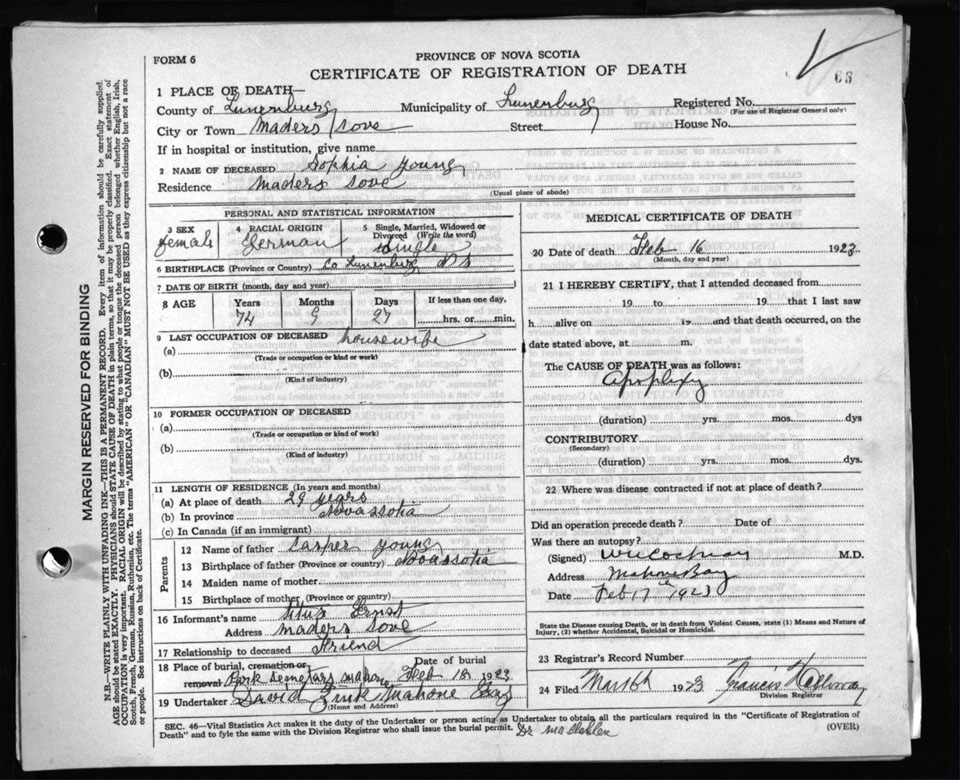 FORM 6
PROVINCE OF NOVA SCOTIA
CERTIFICATE OF REGISTRATION OF DEATH
66
1 PLACE OF DEATH—
County of Lunenburg Municipality of Lunenburg Registered No.
(For use of Registrar General only)
City or Town Maders Cove Street House No.
If in hospital or institution, give name
2 NAME OF DECEASED Sophia Young
Residence Maders Cove
(Usual place of abode)
MARGIN RESERVED FOR BINDING
N.B.—WRITE PLAINLY WITH UNFADING INK—THIS IS A PERMANENT RECORD. Every item of information should be carefully supplied.
AGE should be stated EXACTLY. PHYSICIANS should STATE CAUSE OF DEATH in plain terms, so that it may be properly classified. Exact statement of
OCCUPATION is very important. RACIAL ORIGIN will be described by stating to what people or tongue the deceased person belonged, whether English, Irish,
Scotch, French, German, Russian, Ruthenian, etc. The terms "AMERICAN" OR "CANADIAN" MUST NOT BE USED as they express citizenship but not a race
or people. See instructions on back of Certificate.
PERSONAL AND STATISTICAL INFORMATION
3 SEX
female
4 RACIAL ORIGIN
German
5 Single, Married, Widowed or
Divorced (Write the word)
single
6 BIRTHPLACE (Province or Country) Co Lunenburg N S
7 DATE OF BIRTH (month, day and year)
8 AGE Years Months Days If less than one day,
74 9 27 hrs. or min.
9 LAST OCCUPATION OF DECEASED housewife
(a)
(Trade or occupation or kind of work)
(b)
(Kind of industry)
10 FORMER OCCUPATION OF DECEASED
(a)
(Trade or occupation or kind of work)
(b)
(Kind of industry)
11 LENGTH OF RESIDENCE (In years and months)
(a) At place of death 29 years
(b) In province Novascotia
(c) In Canada (if an immigrant)
Parents
12 Name of father Casper Young
13 Birthplace of father (Province or country) Novascotia
14 Maiden name of mother
15 Birthplace of mother (Province or country)
16 Informant's name Titus Ernst
Address Maders Cove
17 Relationship to deceased Friend
18 Place of burial, cremation or Date of burial
removal Park Cemetary Mahone Feb 18 1923
19 Undertaker David Zink Mahone Bay
(Name and Address)
MEDICAL CERTIFICATE OF DEATH
20 Date of death Feb 16 1923
(Month, day and year)
21 I HEREBY CERTIFY, that I attended deceased from
19 to 19 that I last saw
h alive on 19 and that death occurred, on the
date stated above, at m.
The CAUSE OF DEATH was as follows:
Apoplexy
(duration) yrs. mos. dys
CONTRIBUTORY
(Secondary)
(duration) yrs. mos. dys.
22 Where was disease contracted if not at place of death?
Did an operation precede death? Date of
Was there an autopsy?
(Signed) W N Cochran M.D.
Address Mahone Bay
Date Feb 17 1923
State the Disease causing Death, or in death from Violent Causes, state (1) Means and Nature of
Injury, (2) whether Accidental, Suicidal or Homicidal.
23 Registrar's Record Number
24 Filed 1923 Francis
Division Registrar
SEC. 46—Vital Statistics Act makes it the duty of the Undertaker or person acting as Undertaker to obtain all the particulars required in the "Certificate of Registration of
Death" and to fyle the same with the Division Registrar who shall issue the burial permit. Dr
(OVER)